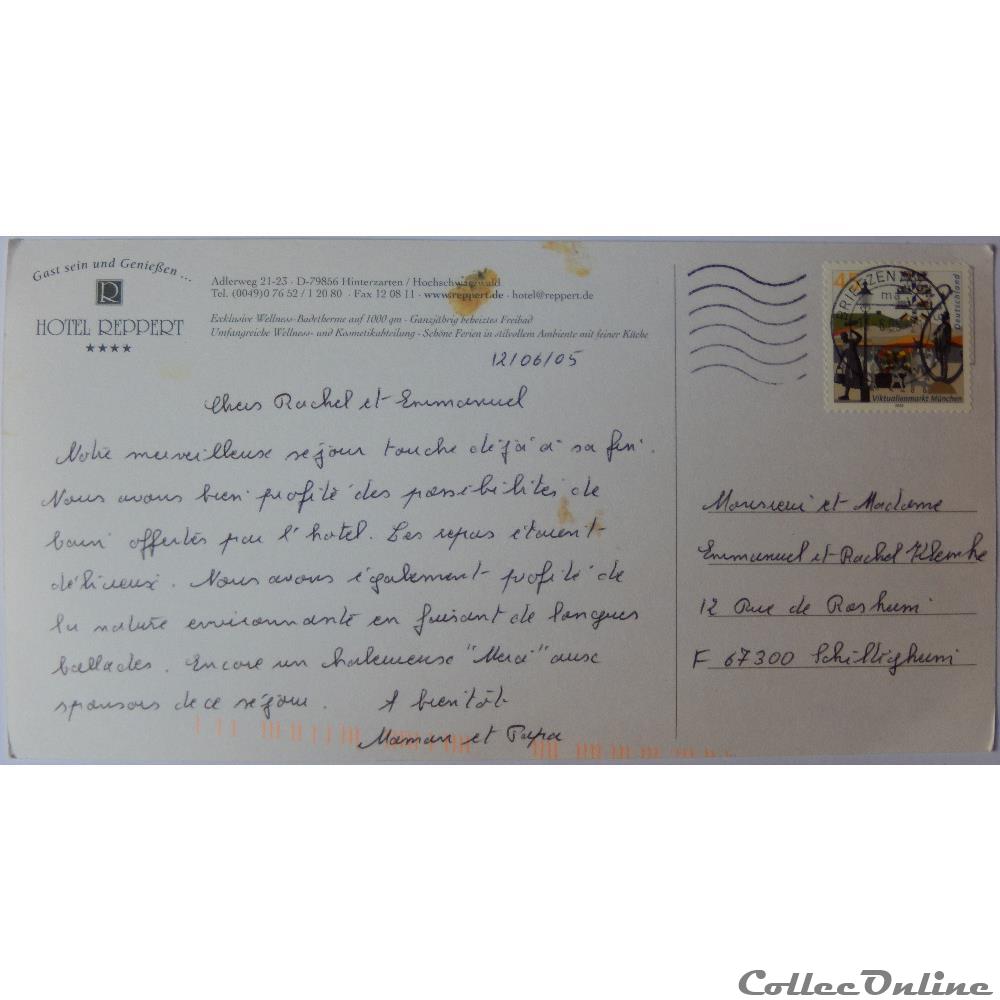 Gast sein und Genießen ...
R
HOTEL REPPERT
★★★★
Adlerweg 21-23 · D-79856 Hinterzarten / Hochschwarzwald
Tel. (0049)0 76 52 / 1 20 80 · Fax 12 08 11 · www.reppert.de · hotel@reppert.de
Exklusive Wellness-Badetherme auf 1000 qm - Ganzjährig beheiztes Freibad
Umfangreiche Wellness- und Kosmetikabteilung - Schöne Ferien in stilvollem Ambiente mit feiner Küche
12/06/05
Chers Rachel et Emmanuel
Notre merveilleuse séjour touche déjà à sa fin.
Nous avons bien profité des possibilités de
bain offertes par l'hotel. Les repas étaient
délicieux. Nous avons également profité de
la nature environnante en faisant de longues
ballades. Encore un chaleureuse "Merci" aux
sponsors de ce séjour. A bientôt
Maman et Papa
45
Deutschland
Viktualienmarkt München
BRIEFZEN
Monsieur et Madame
Emmanuel et Rachel Klemke
12 Rue de Rosheim
F 67300 Schiltigheim
CollecOnline